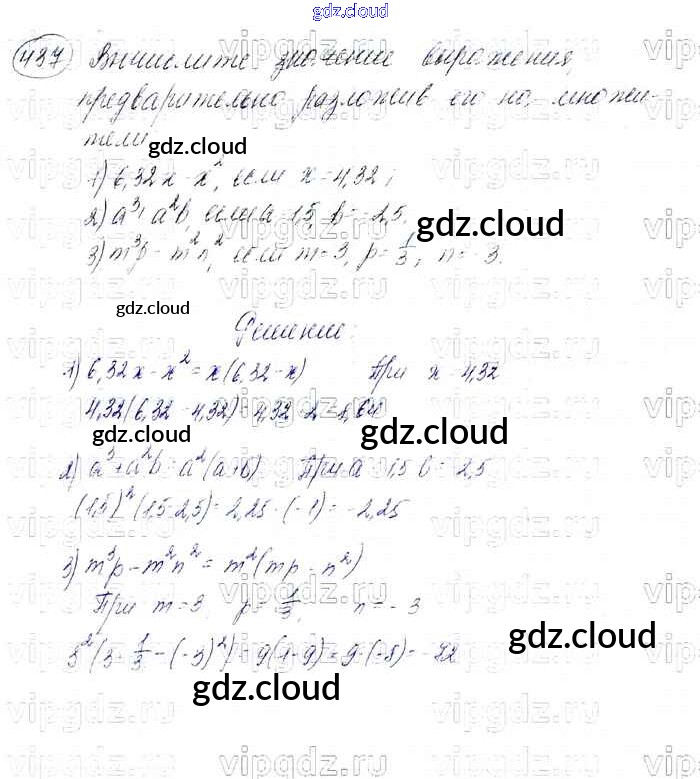 gdz.cloud
437 Вычислите значение выражения,
предварительно разложив его на множи-
тели:
gdz.cloud
1) 6,32x - x², если x = 4,32;
2) a³ + a²b, если a = 1,5, b = -2,5;
gdz.cloud
3) m³p - m²n², если m = 3, p = 1/3, n = -3.
gdz.cloud
Решение:
1) 6,32x - x² = x(6,32 - x) При x = 4,32
4,32(6,32 - 4,32) = 4,32 · 2 = 8,64
gdz.cloud
gdz.cloud
2) a³ + a²b = a²(a+b) При a = 1,5 b = -2,5
(1,5)²(1,5-2,5) = 2,25 · (-1) = -2,25
3) m³p - m²n² = m²(mp - n²)
При m = 3, p = 1/3, n = -3
gdz.cloud
3²(3 · 1/3 - (-3)²) = 9(1-9) = 9 · (-8) = -72
gdz.cloud
vipgdz.ru